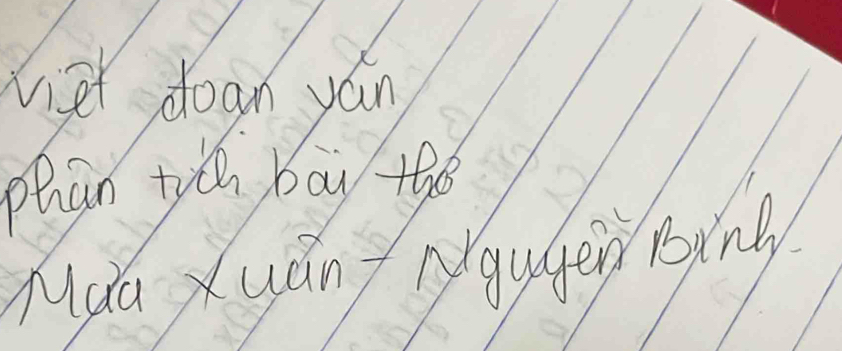 viết đoạn văn
phân tích bài thơ
Mùa Xuân - Nguyễn Bính.